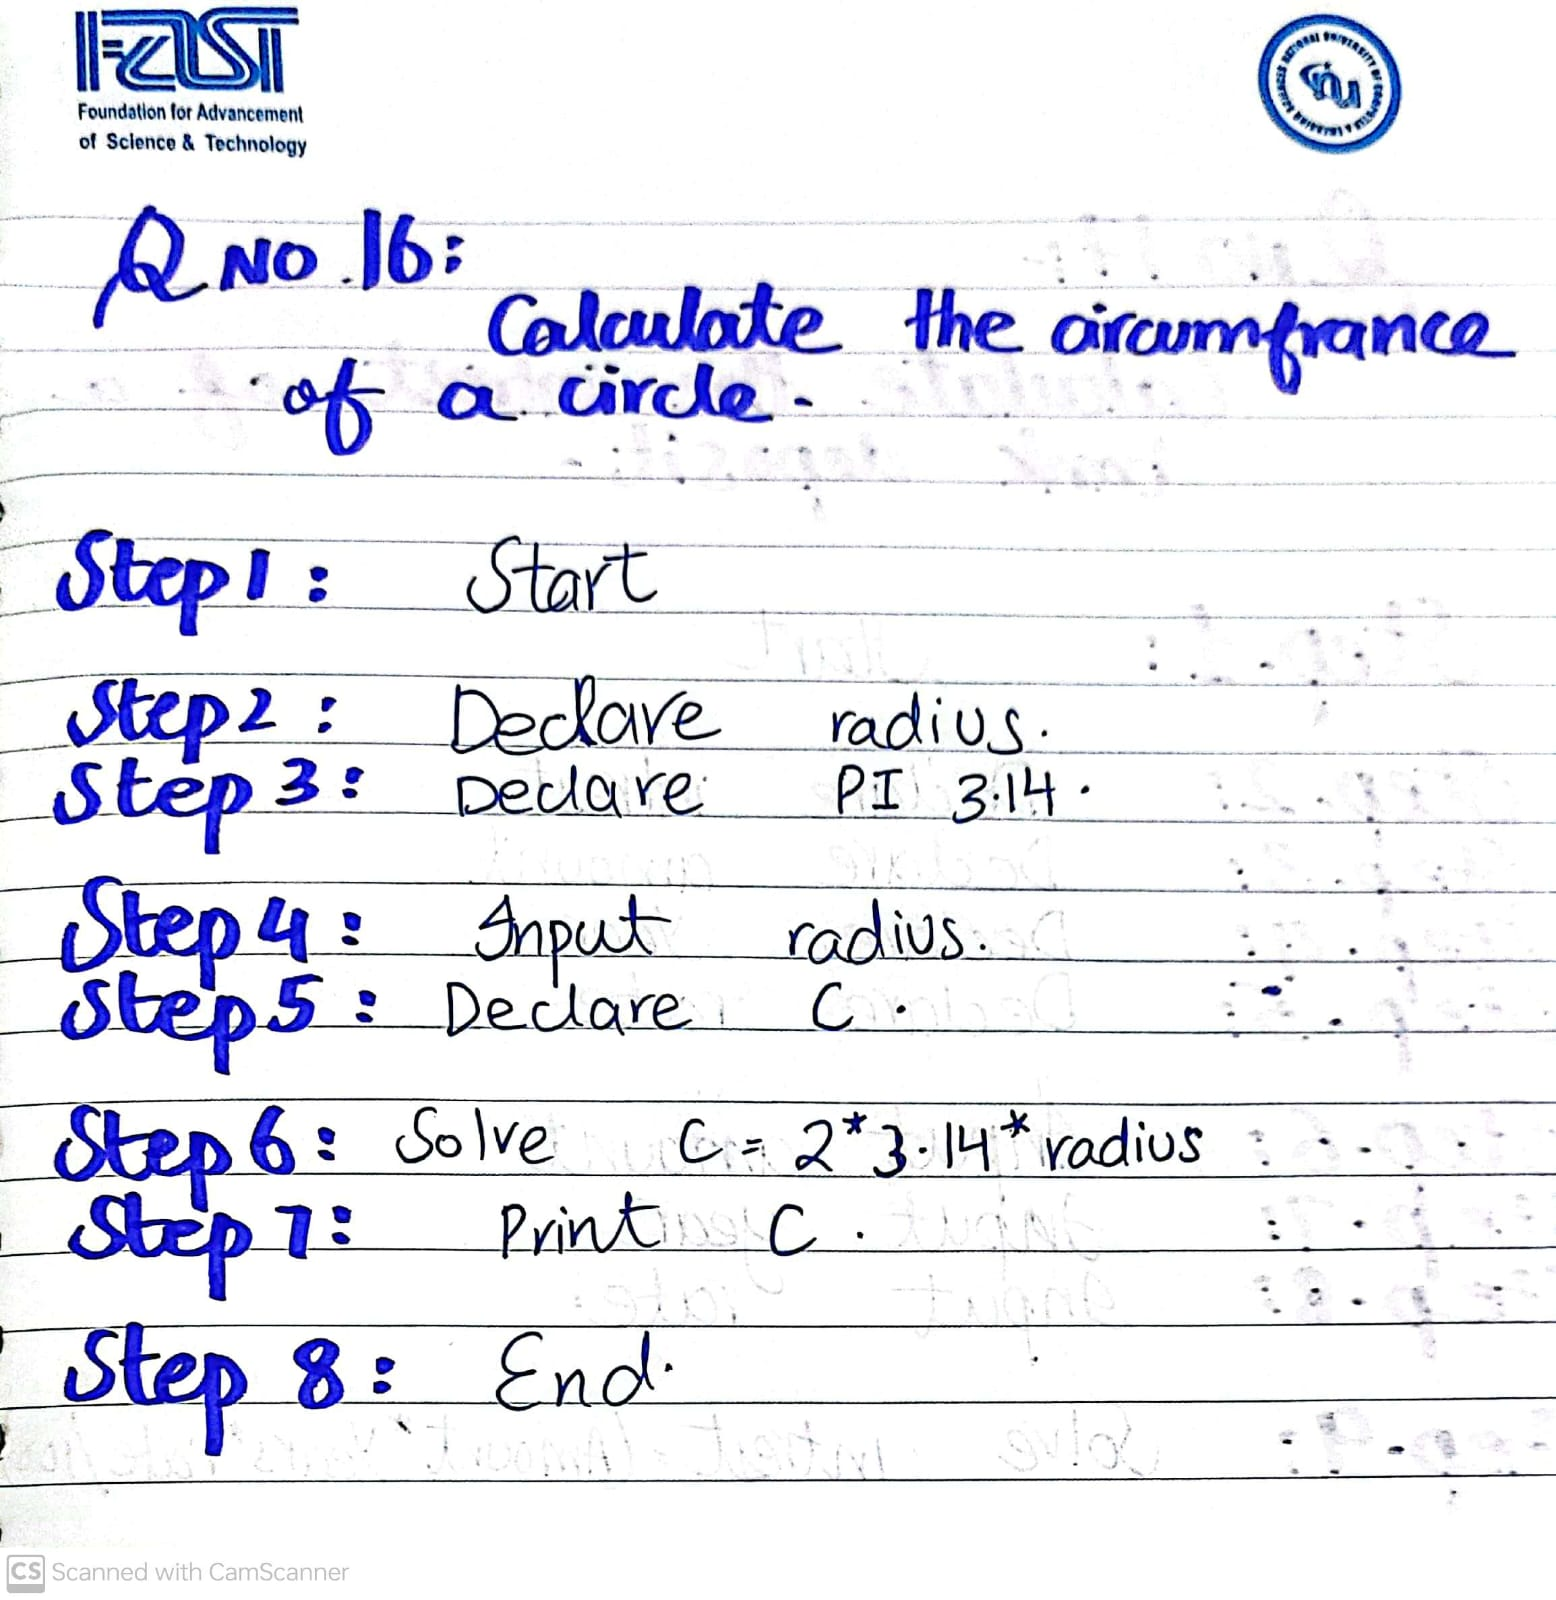 FAST
Foundation for Advancement
of Science & Technology
Q NO.16:
Calculate the circumfrance
of a circle.
Step1: Start
Step2: Declare radius.
Step 3: Declare PI 3.14.
Step 4: Input radius.
Step5: Declare C.
Step 6: Solve C = 2*3.14* radius
Step 7: Print C.
Step 8: End.
CS Scanned with CamScanner